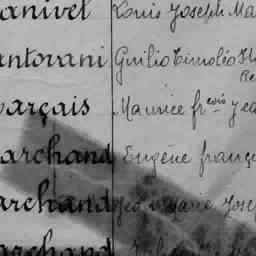 anivel Louis Joseph Ma
antovani Guilio Timoléo
arçais Maurice frçois Jea
archand Eugène franço
archand Geo Marie Jose
archand